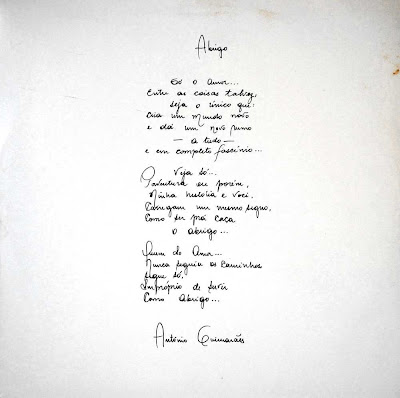 Abrigo
Só o amor...
Entre as coisas talvez,
seja o único que:
Cria um mundo novo
e dá um novo rumo
— a tudo —
e em completo fascínio...
Veja só...
ou porém,
Minha história e você,
Carregam um mesmo signo,
Como ser prá caça
o abrigo...
Quem do Amor...
Nunca seguiu os caminhos
Segue só,
Impróprio de
Como Abrigo...
António Guimarães